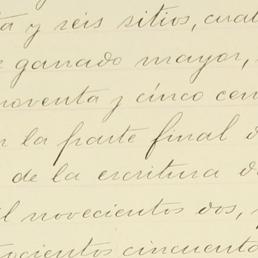 ta y seis sitios, cual
ganado mayor,
noventa y cinco cen
la parte final d
de la escritura d
il novecientos dos,
ocientos cincuenta